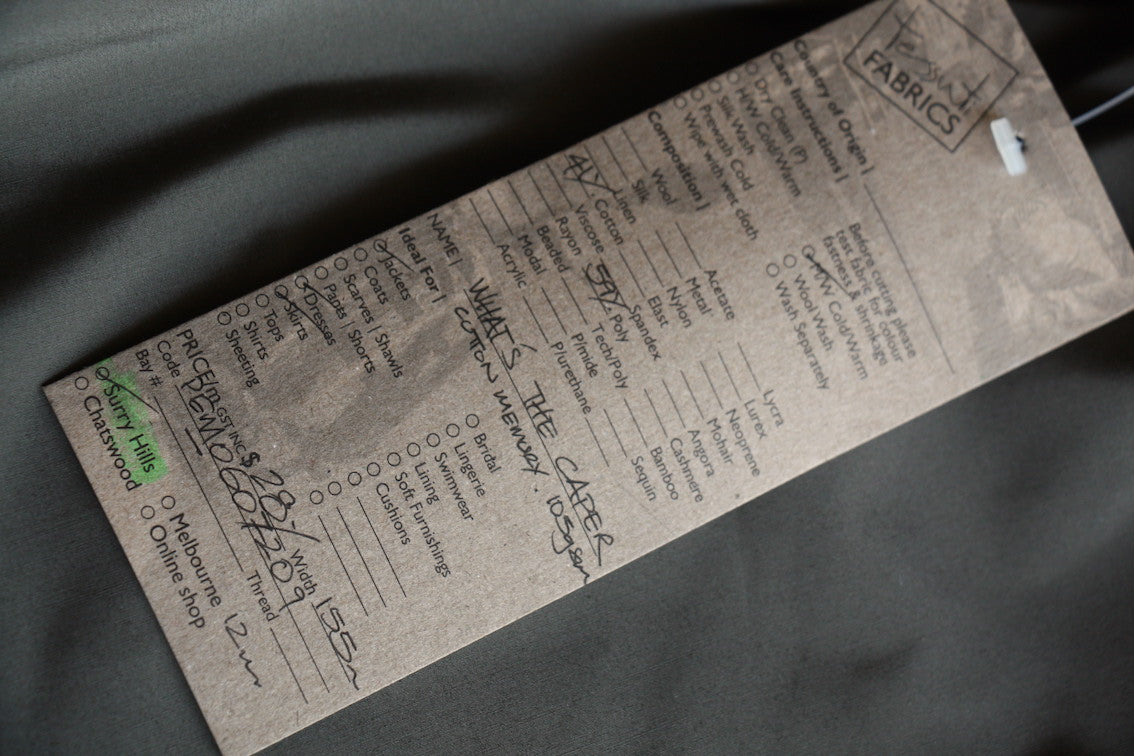 Tessuti
FABRICS
Country of Origin |
Care Instructions |
Dry Clean (P)
H/W Cold/Warm
Silk Wash
Prewash Cold
Wipe with wet cloth
Before cutting please
test fabric for colour
fastness & shrinkage
M/W Cold/Warm
Wool Wash
Wash Separately
Composition |
Wool
Silk
Linen
41% Cotton
Viscose
Rayon
Beaded
Modal
Acrylic
Acetate
Metal
Nylon
Elast
Spandex
59% Poly
Tech/Poly
P/mide
P/urethane
Lycra
Lurex
Neoprene
Mohair
Angora
Cashmere
Bamboo
Sequin
NAME | WHAT'S THE CAPER
COTTON MEMORY. 105gsm
Ideal For |
Jackets
Coats
Scarves | Shawls
Pants | Shorts
Dresses
Skirts
Tops
Shirts
Sheeting
Bridal
Lingerie
Swimwear
Lining
Soft Furnishings
Cushions
PRICE/m GST INC $ 28/- Width 155
Code PEM060/209 Thread
Bay #
Surry Hills
Chatswood
Melbourne 12m
Online shop